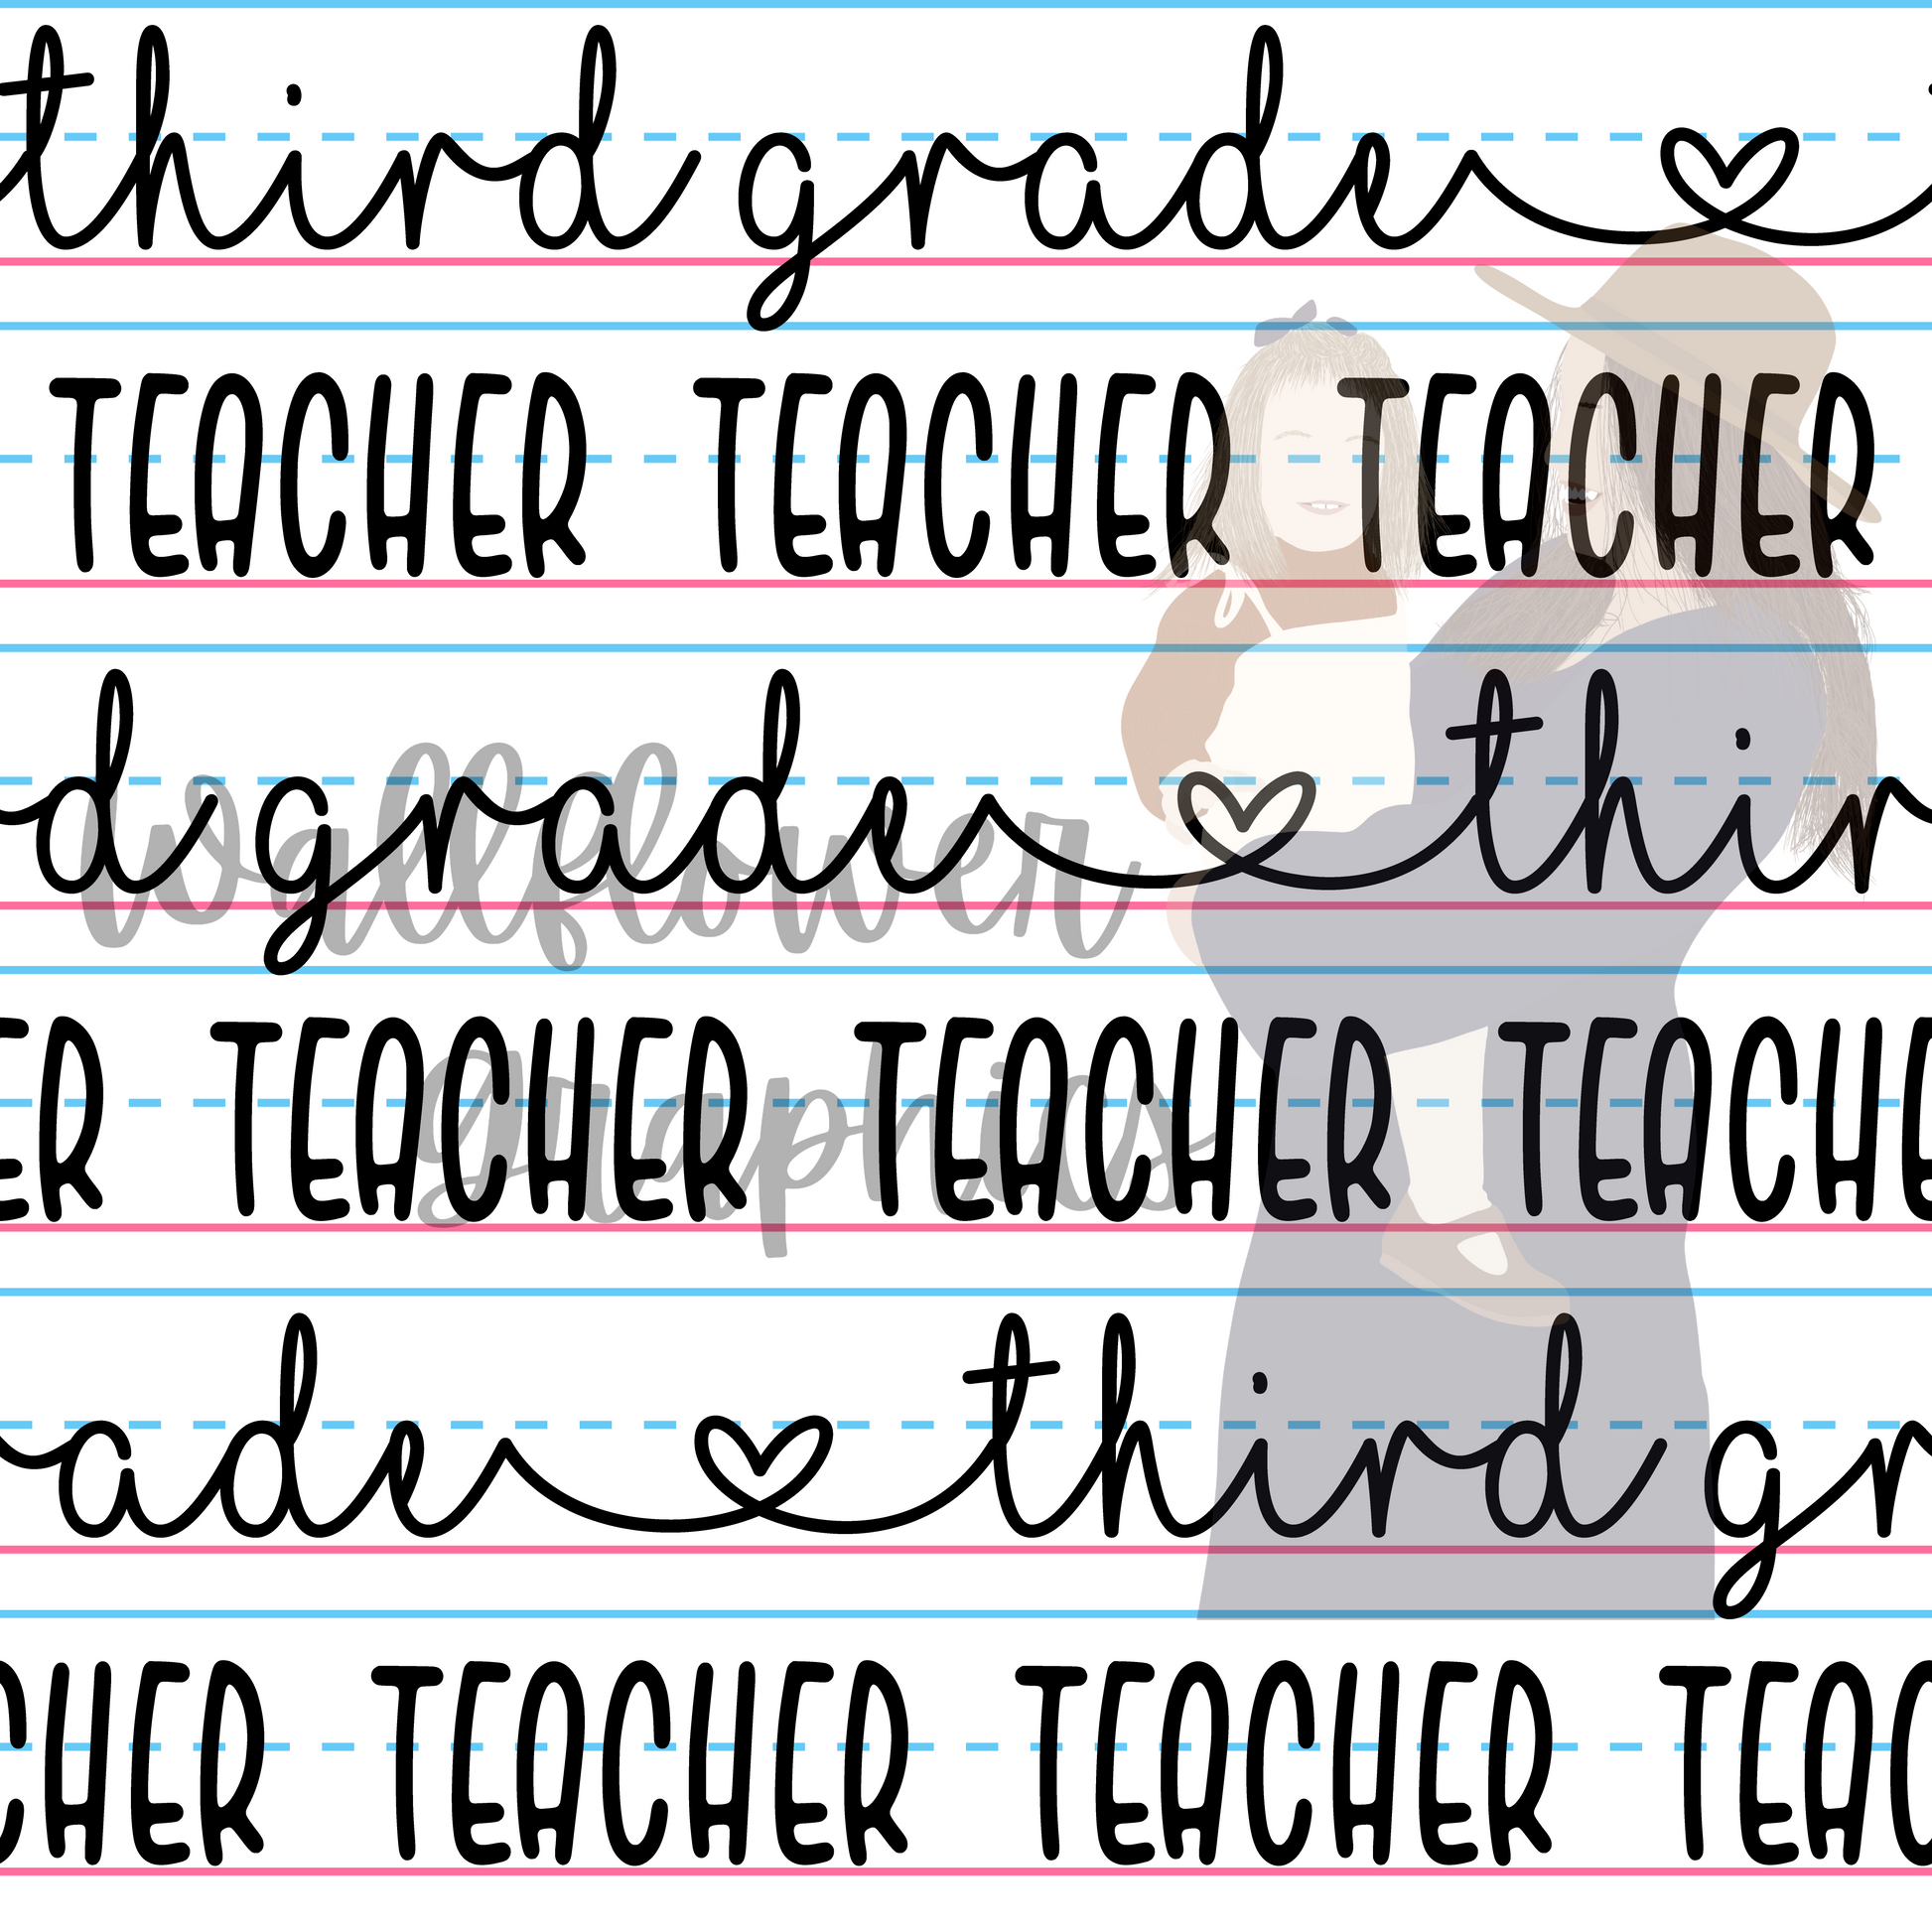 third grade
TEACHER TEACHER TEACHER
d grade thir
wallflower
ER TEACHER TEACHER TEACHE
graphics
ade third gr
CHER TEACHER TEACHER TEAC